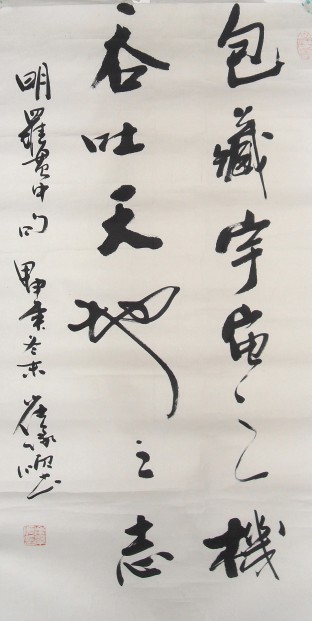 包藏宇宙之機
吞吐天地之志
明羅貫中句 甲申年冬末